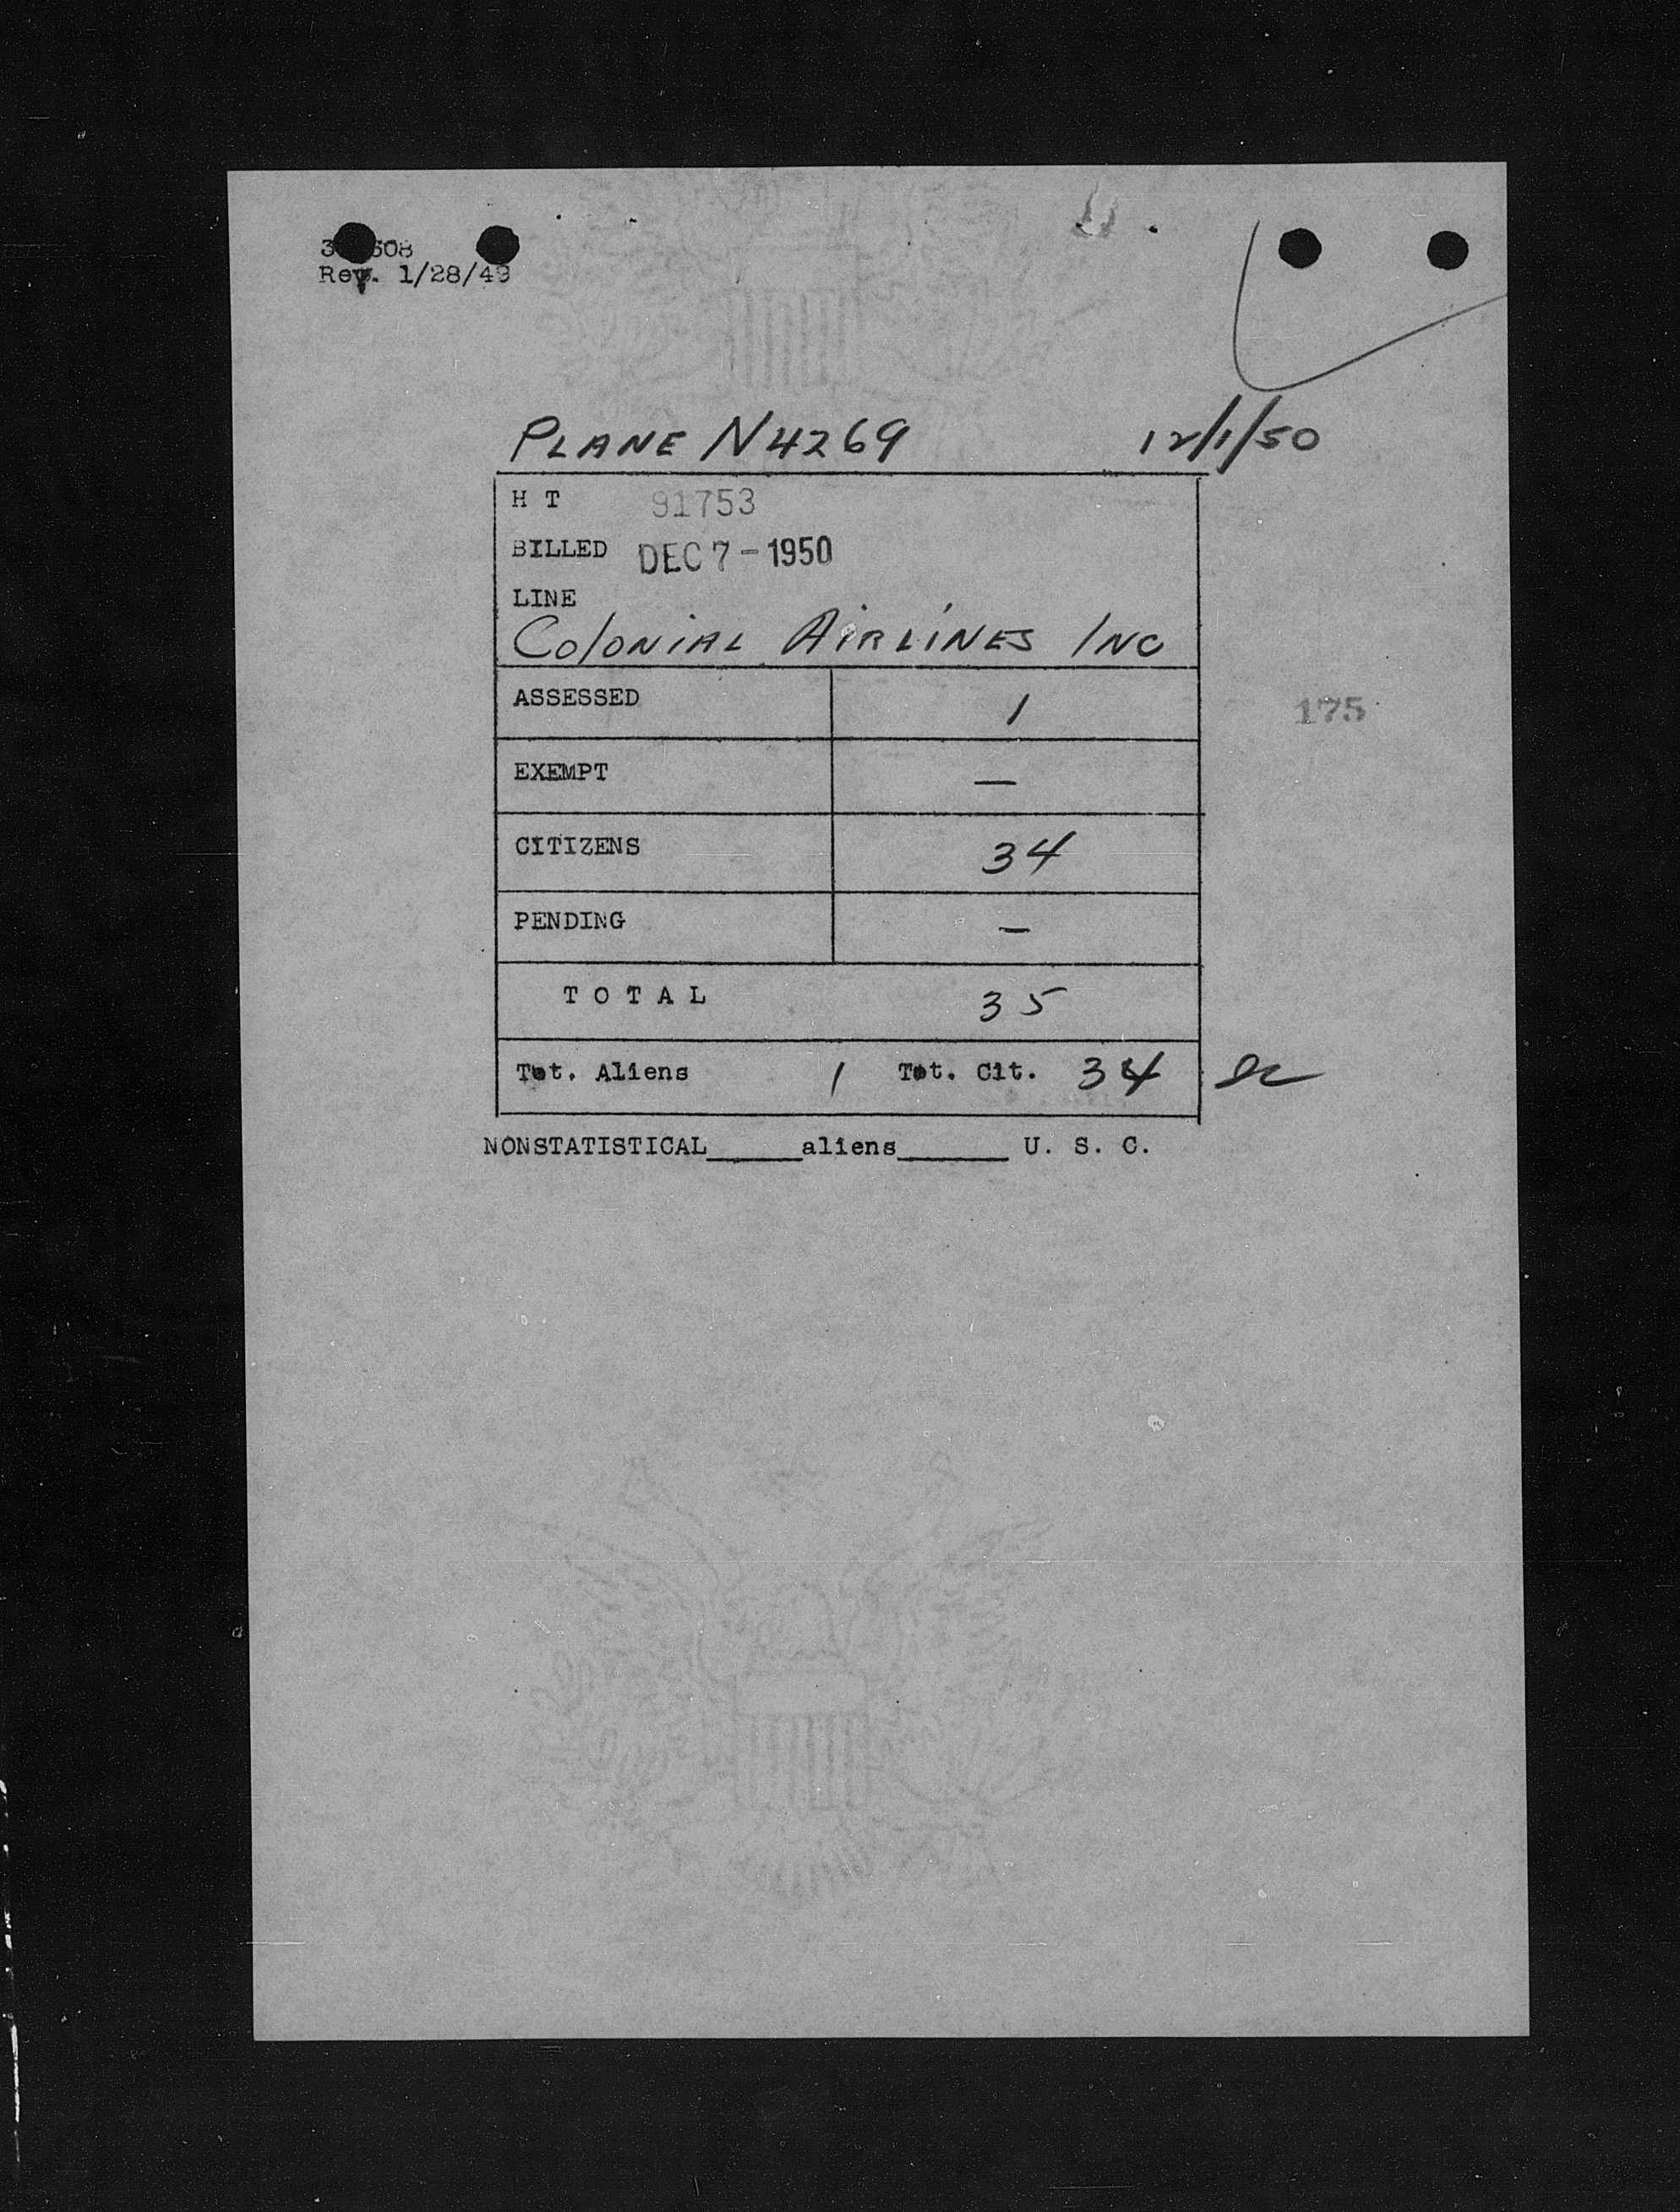 Rev. 1/28/49
PLANE N4269 12/1/50
H T 91753
BILLED DEC 7 - 1950
LINE
COLONIAL AIRLINES INC
ASSESSED 1
175
EXEMPT —
CITIZENS 34
PENDING —
T O T A L 35
Tot. Aliens 1 Tot. Cit. 34
NONSTATISTICAL_____aliens______ U. S. C.